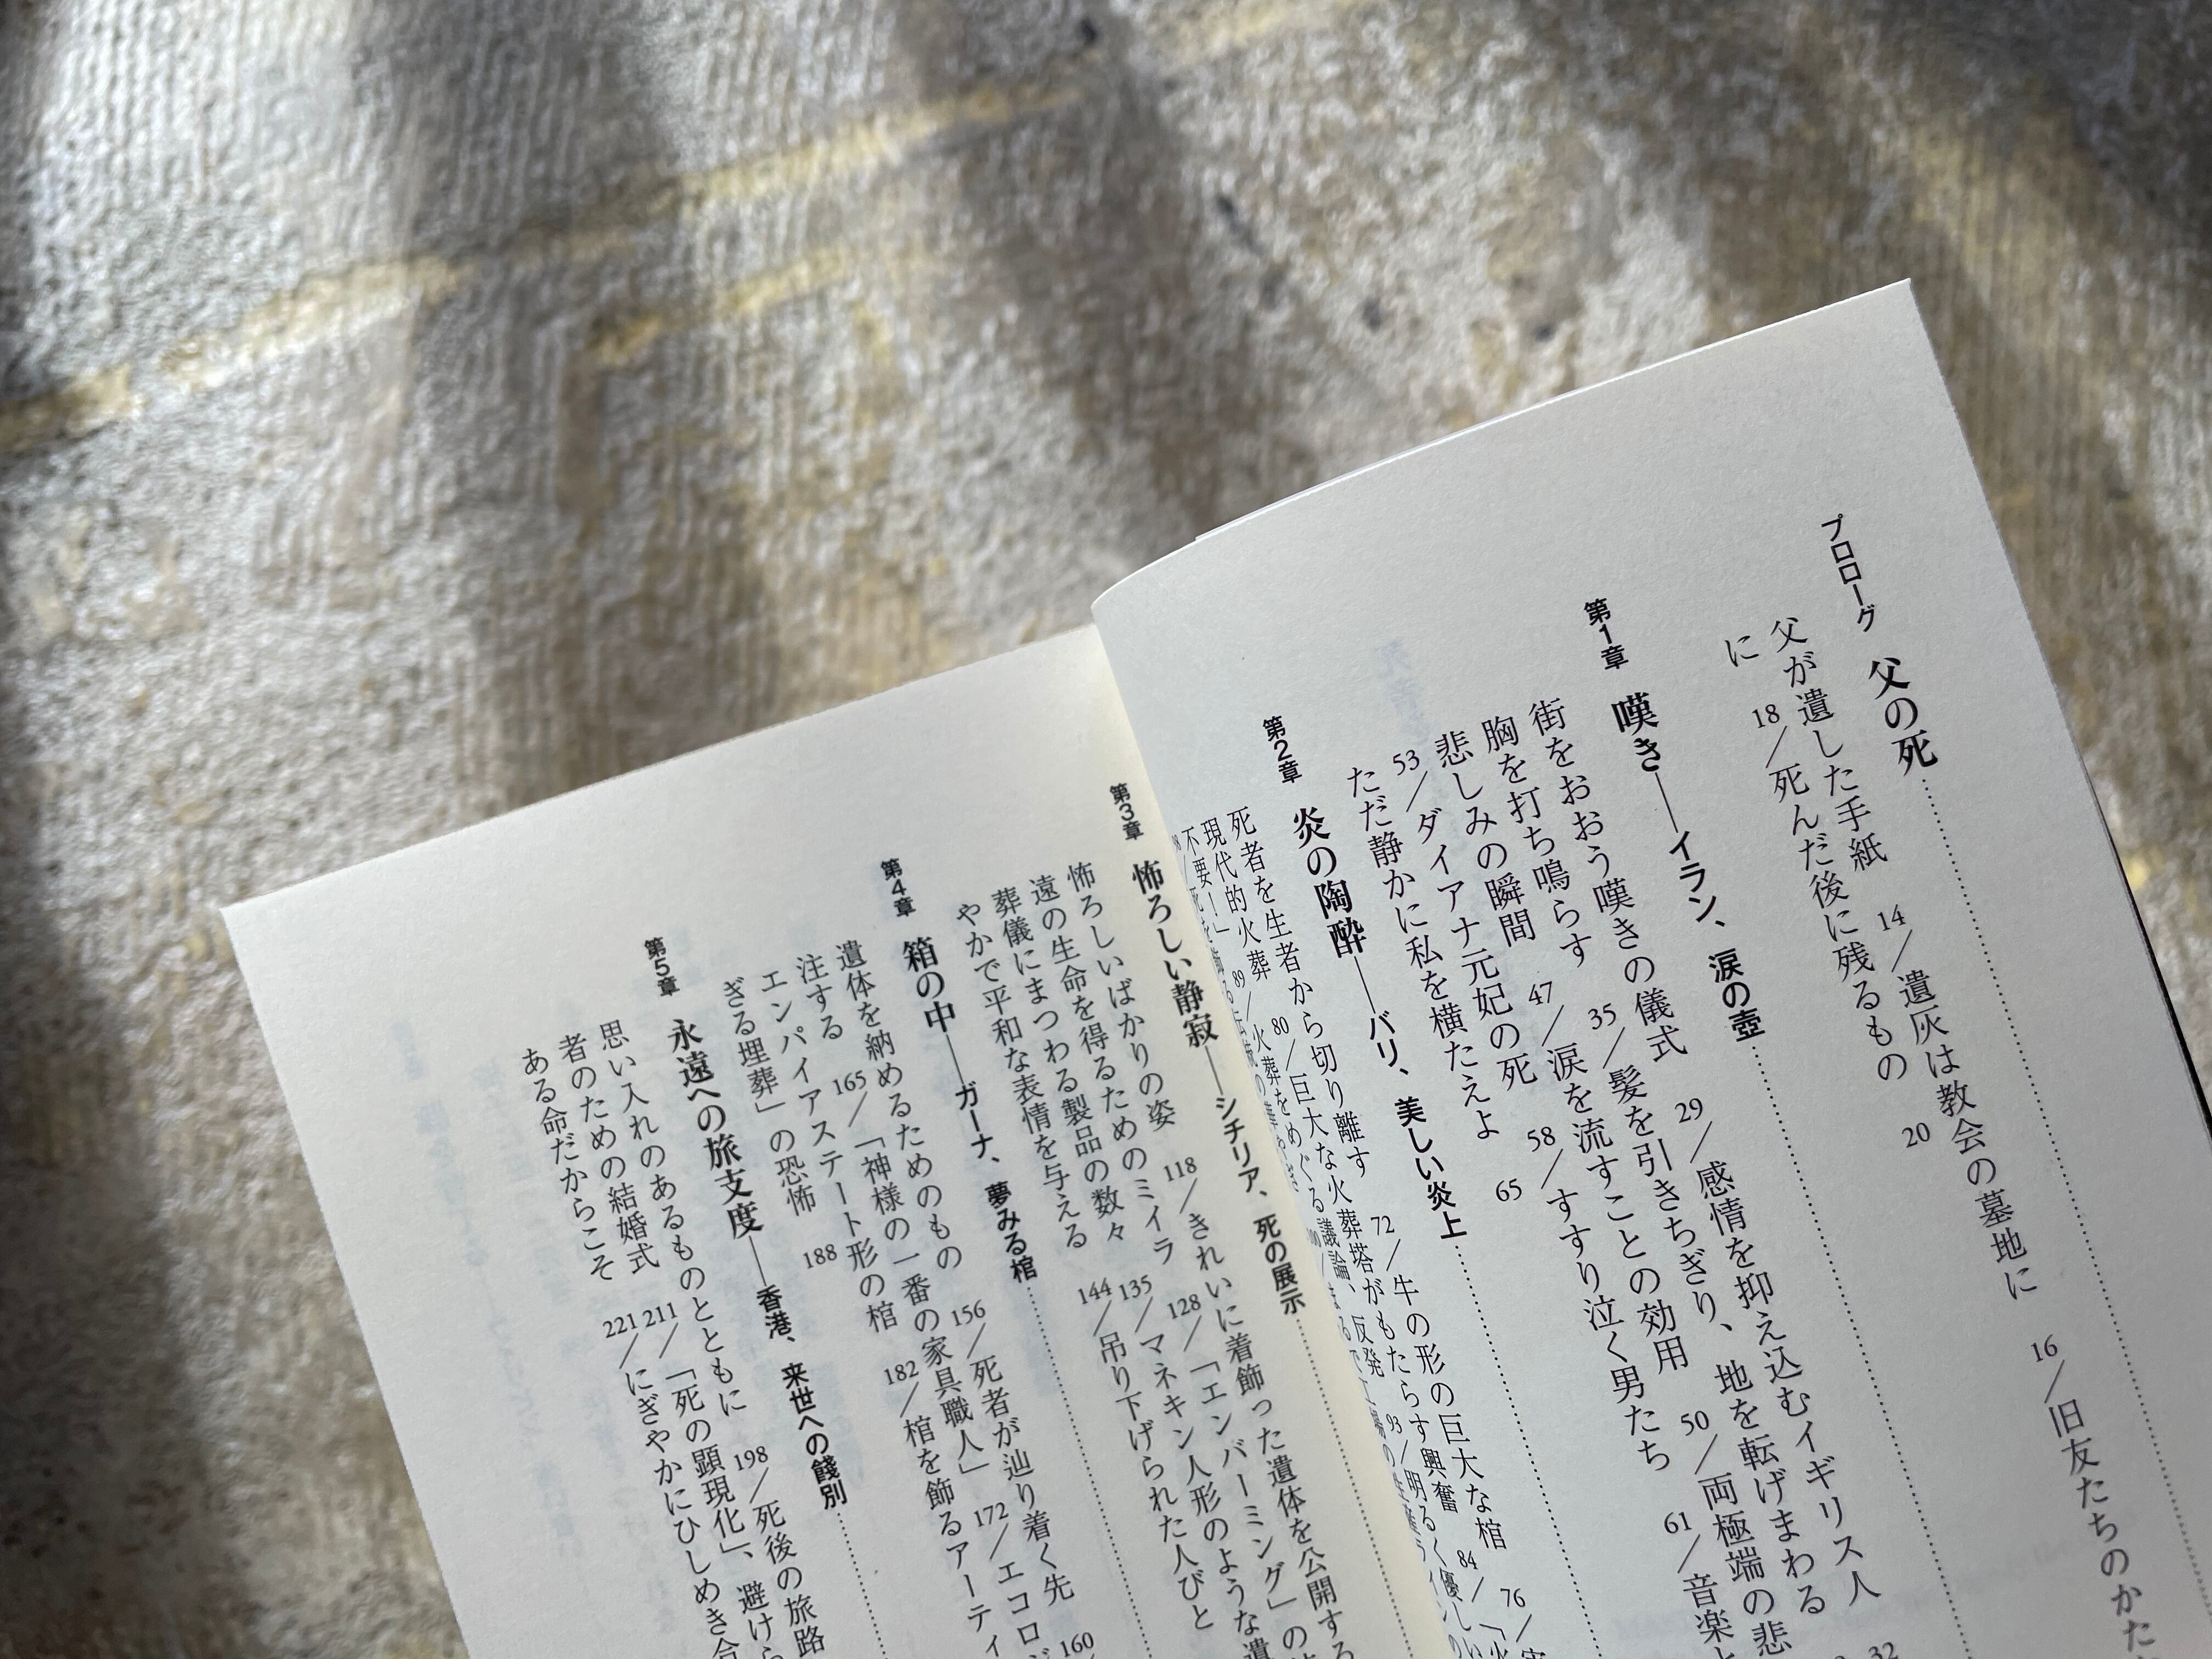 プロローグ 父の死
父が遺した手紙 14／遺灰は教会の墓地に 16／旧友たちのかた
に 18／死んだ後に残るもの 20
第1章 嘆き──イラン、涙の壺
街をおおう嘆きの儀式 29／感情を抑え込むイギリス人 32
胸を打ち鳴らす 35／髪を引きちぎり、地を転げまわる
悲しみの瞬間 47／涙を流すことの効用 50／両極端の悲
53／ダイアナ元妃の死 58／すすり泣く男たち 61／音楽
ただ静かに私を横たえよ 65
第2章 炎の陶酔──バリ、美しい炎上
死者を生者から切り離す 72／牛の形の巨大な棺 76／
現代的火葬 80／巨大な火葬塔がもたらす興奮 84／
不要！」 89／火葬をめぐる議論、反発 93／明るく優しい
第3章 怖ろしい静寂──シチリア、死の展示
怖ろしいばかりの姿 118／きれいに着飾った遺体を公開する
遠の生命を得るためのミイラ 128／「エンバーミング」の
葬儀にまつわる製品の数々 135／マネキン人形のような遺
やかで平和な表情を与える 144／吊り下げられた人びと
第4章 箱の中──ガーナ、夢みる棺
遺体を納めるためのもの 156／死者が辿り着く先 160／
注する 165／「神様の一番の家具職人」 172／エコロジ
エンパイアステート形の棺 182／棺を飾るアーティ
ぎる埋葬」の恐怖 188
第5章 永遠への旅支度──香港、来世への餞別
思い入れのあるものとともに 198／死後の旅路
者のための結婚式 211／「死の顕現化」、避けら
ある命だからこそ 221／にぎやかにひしめき合